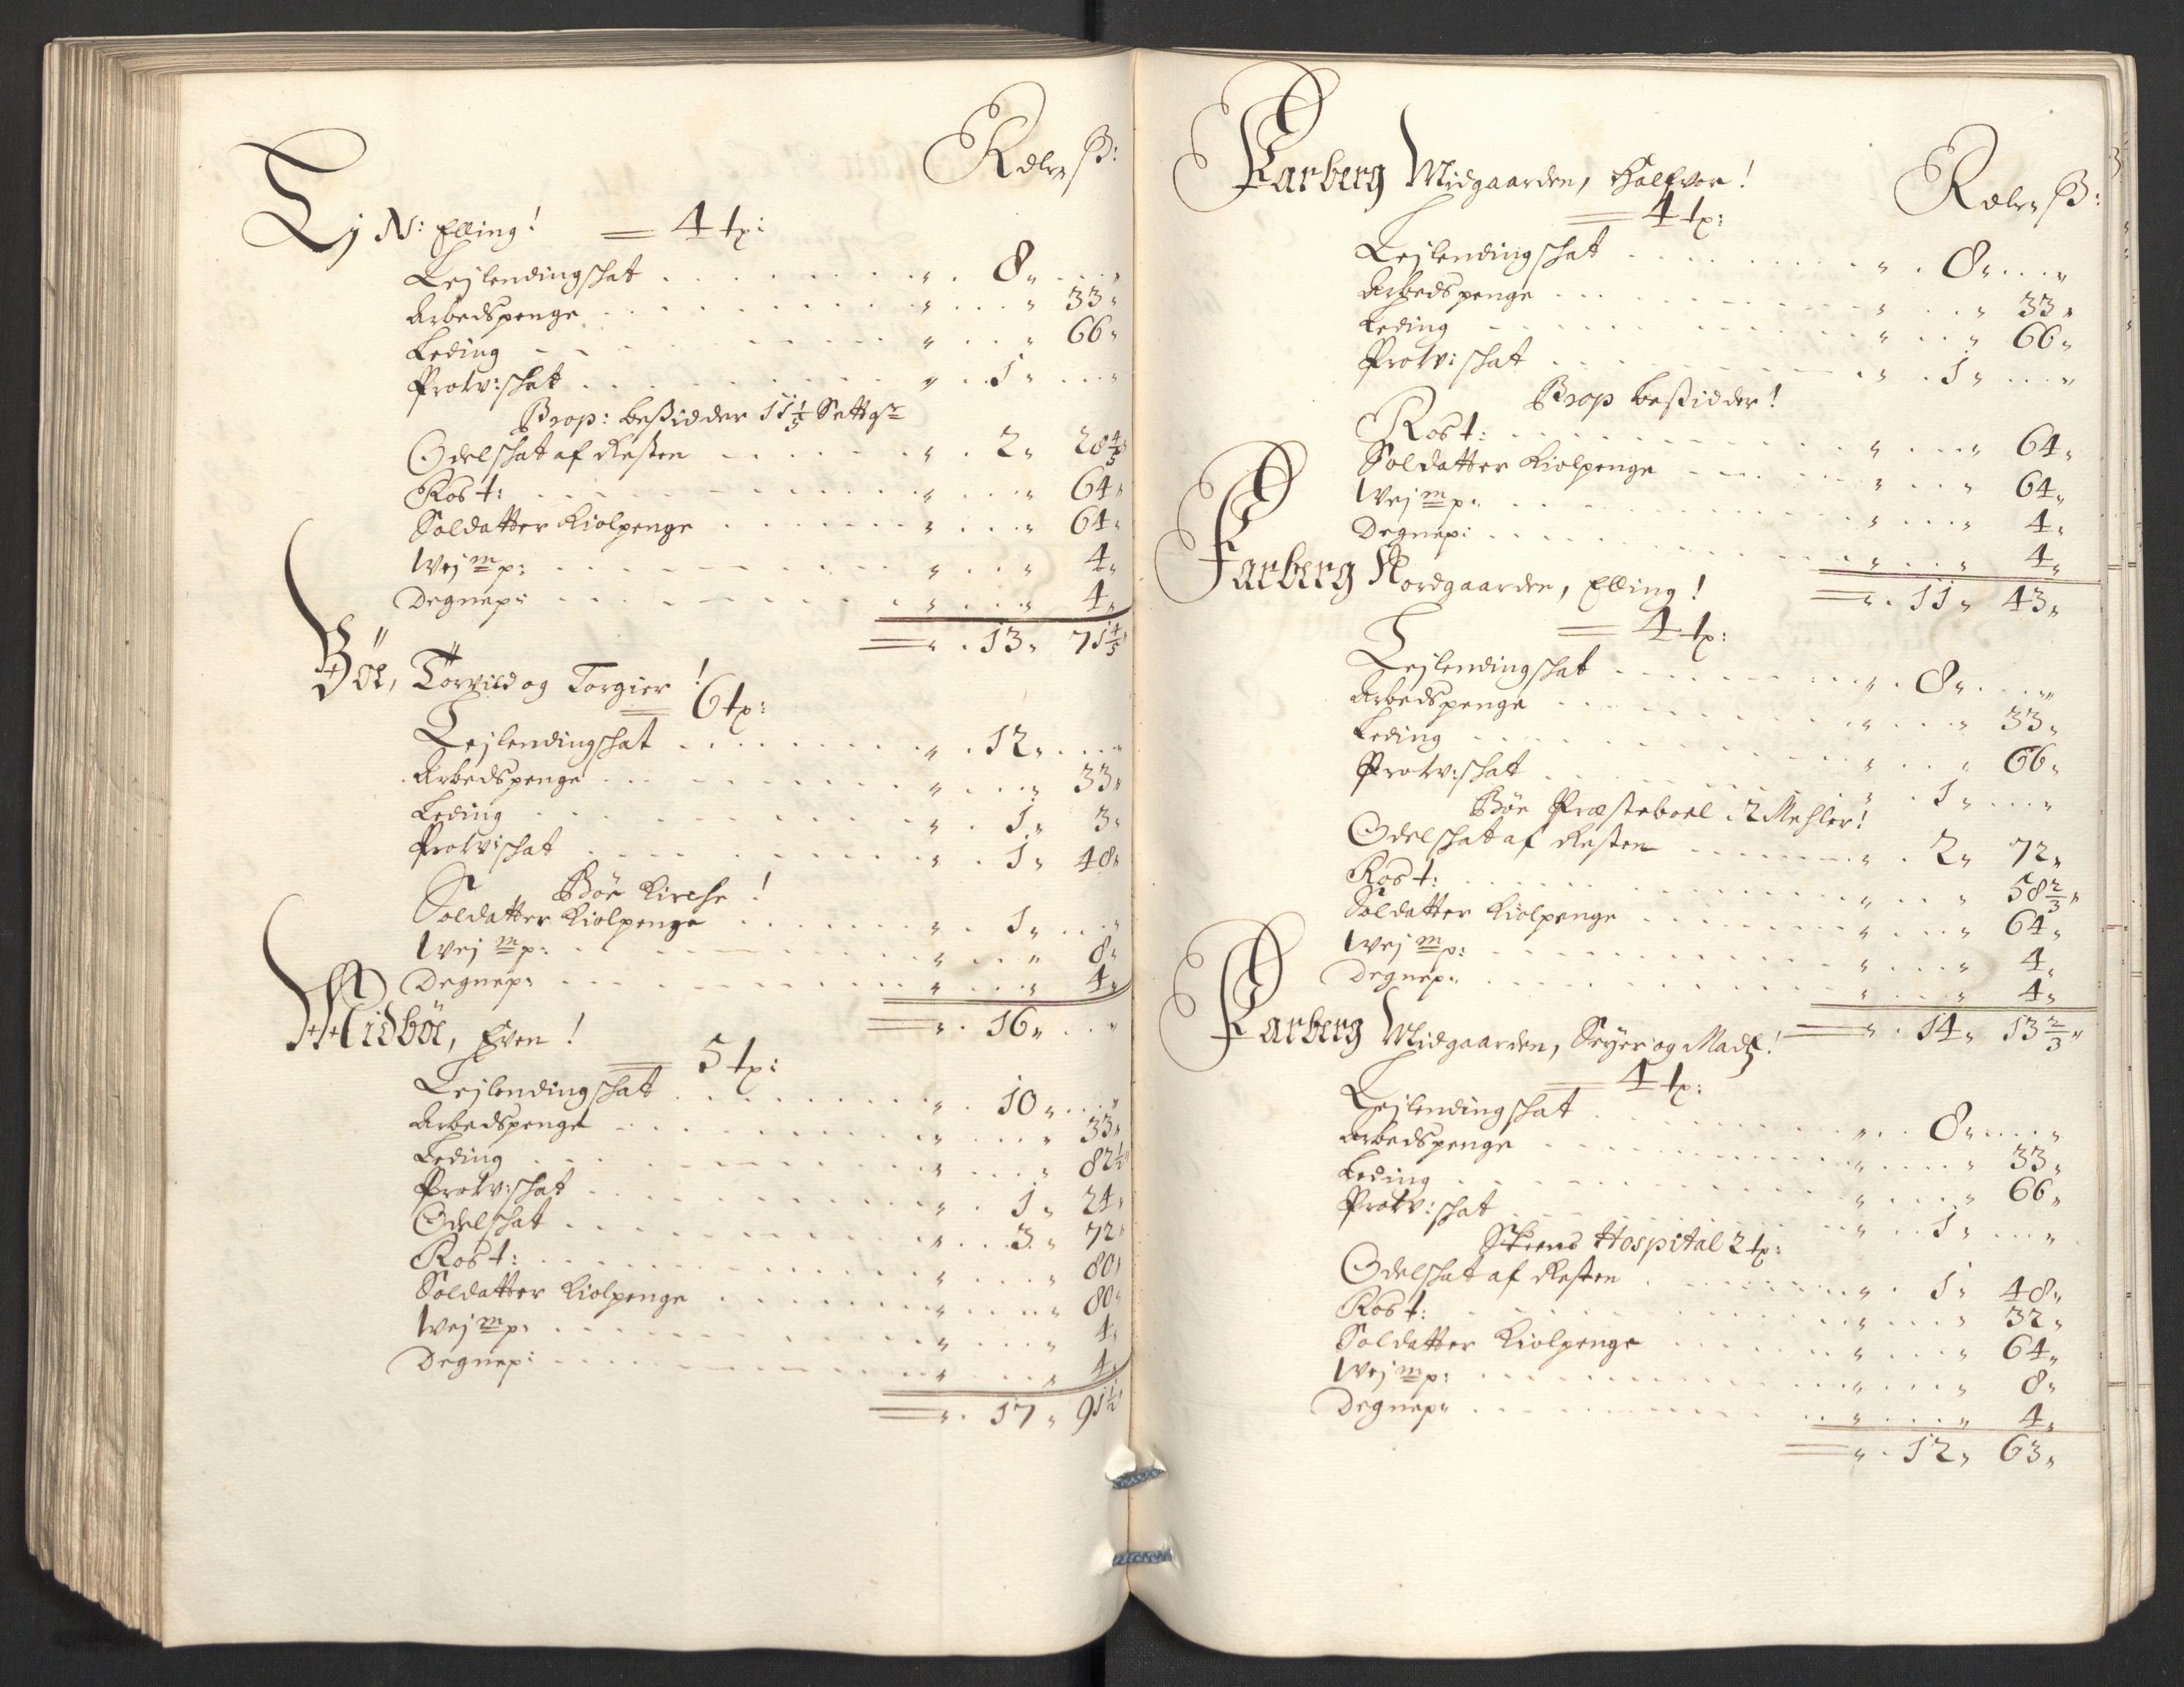 Rdlr ß:
Lj N: Elling! = 4 tp:
Leilendingschat . . . „ . 8 „ . . . „
Arbedspenge . . . „ . . . „ 33 „
Leding . . . „ . . . „ 66 „
Prov: schat . . . „ . 1 „ . . . „
Prop: beßidder 11 1/5 Settgr
Odelschat af Resten . . . „ . 2 „ 28 4/5 „
Ros t: . . . „ . . . „ 64 „
Soldatter Kiolpenge . . . „ . . . „ 64 „
Wej m p: . . . „ . . . „ 4 „
Degnep: . . . „ . . . „ 4 „
= „ . 13 „ 71 4/5 „
Böe, Torvild og Torgier!
= 6 tp:
Leilendingschat . . . „ . 12 „ . . . „
Arbedspenge . . . „ . . . „ 33 „
Leding . . . „ . 1 „ 3 „
Prov: schat . . . „ . 1 „ 48 „
Böe Kirche!
Soldatter Kiolpenge . . . „ . 1 „ . . . „
Wej m p: . . . „ . . . „ 8 „
Degnep: . . . „ . . . „ 4 „
= „ . 16 „ . . „
Midböe, Even!
= 5 tp:
Leilendingschat . . . „ . 10 „ . . . „
Arbedspenge . . . „ . . . „ 33 „
Leding . . . „ . . . „ 82 1/2 „
Prov: schat . . . „ . 1 „ 24 „
Odelschat . . . „ . . 3 „ 72 „
Ros t: . . . „ . . . „ 80 „
Soldatter Kiolpenge . . . „ . . . „ 80 „
Wej m p: . . . „ . . . „ 4 „
Degnep: . . . „ . . . „ 4 „
= „ . 17 „ 91 1/2 „
Farberg Midgaarden, Hallvor!
Rdlr ß:
= 4 tp:
Leilendingschat . . . „ . 8 „ . . . „
Arbedspenge . . . „ . . . „ 33 „
Leding . . . „ . . . „ 66 „
Prov: schat . . . „ . 1 „ . . . „
Prop beßidder!
Ros t: . . . „ . . . „ 64 „
Soldatter Kiolpenge . . . „ . . . „ 64 „
Wej m p: . . . „ . . . „ 4 „
Degnep: . . . „ . . . „ 4 „
= „ . 11 „ 43 „
Farberg Nordgaarden, Elling!
= 4 tp:
Leilendingschat . . . „ . 8 „ . . . „
Arbedspenge . . . „ . . . „ 33 „
Leding . . . „ . . . „ 66 „
Prov: schat . . . „ . 1 „ . . . „
Böe Præsteboel . 2 Mehler!
Odelschat af Resten . . . „ . 2 „ 72 „
Ros t: . . . „ . . . „ 58 2/3 „
Soldatter Kiolpenge . . . „ . . . „ 64 „
Wej m p: . . . „ . . . „ 4 „
Degnep: . . . „ . . . „ 4 „
= „ . 14 „ 13 2/3 „
Farberg Midgaarden, Seyer og Madz!
= 4 tp:
Leilendingschat . . . „ . . 8 „ . . . „
Arbedspenge . . . „ . . . „ 33 „
Leding . . . „ . . . „ 66 „
Prov: schat . . . „ . . 1 „ . . . „
Skeens Hospital 2 tp:
Odelschat af Resten . . . „ . 1 „ 48 „
Ros t: . . . „ . . . „ 32 „
Soldatter Kiolpenge . . . „ . . . „ 64 „
Wej m p: . . . „ . . . „ 8 „
Degnep: . . . „ . . . „ 4 „
= „ . 12 „ 63 „